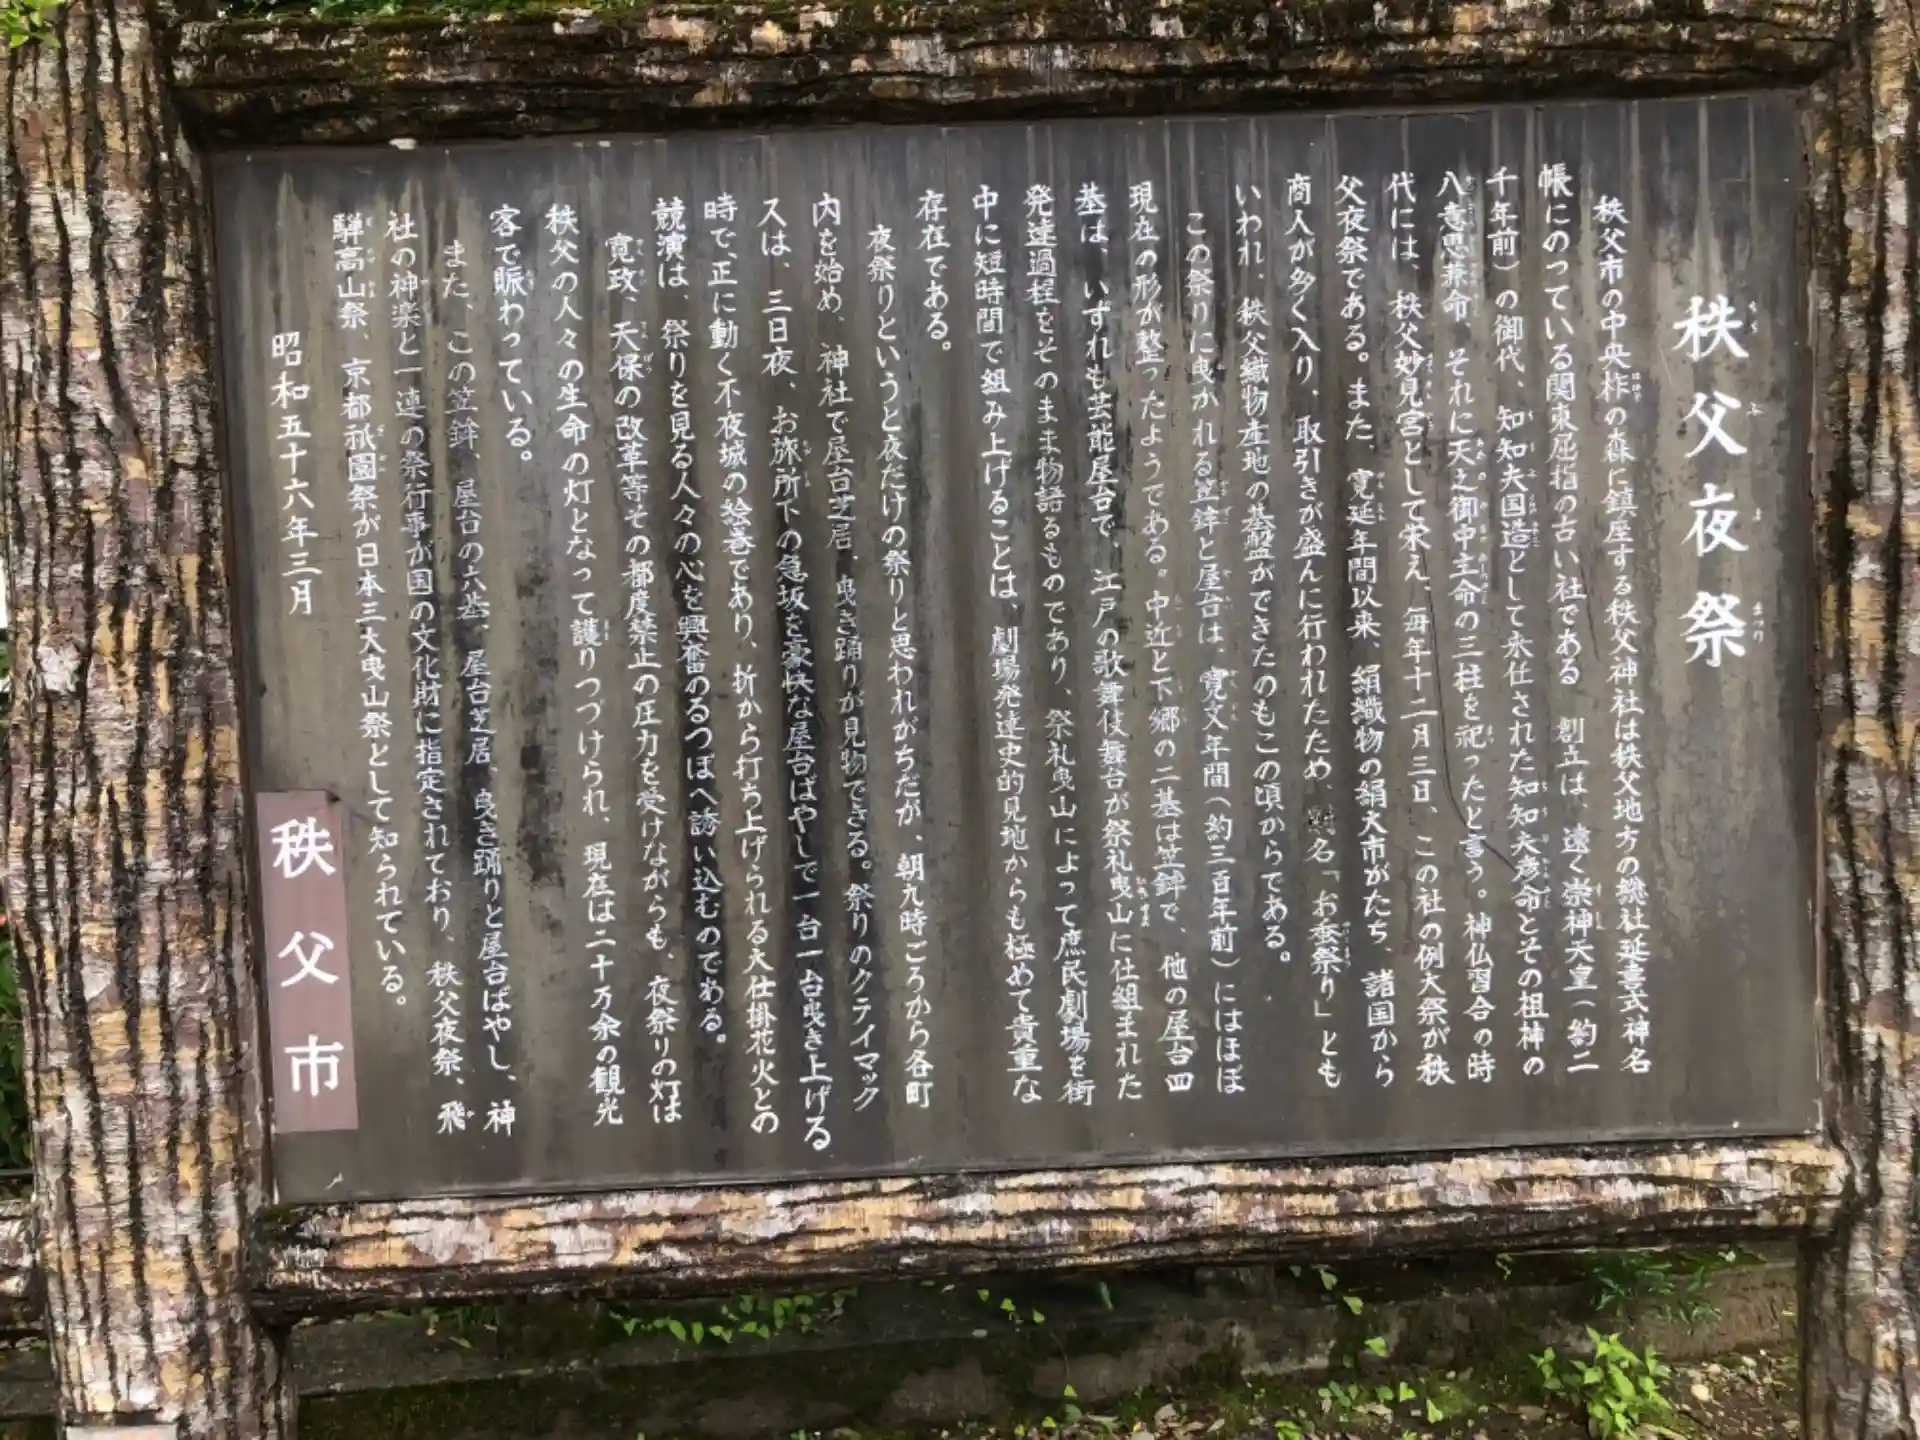 秩父夜祭
秩父市の中央柞の森に鎮座する秩父神社は秩父地方の総社延喜式神名
帳にのっている関東屈指の古い社である 創立は、遠く崇神天皇（約二
千年前）の御代、知知夫国造として来任された知知夫彦命とその祖神の
八意思兼命、それに天之御中主命の三柱を祀ったと言う。神仏習合の時
代には、秩父妙見宮として栄え、毎年十二月三日、この社の例大祭が秩
父夜祭である。また、寛延年間以来、絹織物の絹大市がたち、諸国から
商人が多く入り、取引きが盛んに行われたため、別名「お蚕祭り」とも
いわれ、秩父織物産地の基盤ができたのもこの頃からである。
この祭りに曳かれる笠鉾と屋台は、寛文年間（約三百年前）にほぼ
現在の形が整ったようである。中近と下郷の二基は笠鉾で、他の屋台四
基は、いずれも芸能屋台で、江戸の歌舞伎舞台が祭礼曳山に仕組まれた
発達過程をそのまま物語るものであり、祭礼曳山によって庶民劇場を街
中に短時間で組み上げることは、劇場発達史的見地からも極めて貴重な
存在である。
夜祭りというと夜だけの祭りと思われがちだが、朝九時ごろから各町
内を始め、神社で屋台芝居、曳き踊りが見物できる。祭りのクライマック
スは、三日夜、お旅所下の急坂を豪快な屋台ばやしで一台一台曳き上げる
時で、正に動く不夜城の絵巻であり、折から打ち上げられる大仕掛花火との
競演は、祭りを見る人々の心を興奮のるつぼへ誘い込むのである。
寛政、天保の改革等その都度禁止の圧力を受けながらも、夜祭りの灯は
秩父の人々の生命の灯となって護りつづけられ、現在は二十万余の観光
客で賑わっている。
また、この笠鉾、屋台の六基、屋台芝居、曳き踊りと屋台ばやし、神
社の神楽と一連の祭行事が国の文化財に指定されており、秩父夜祭、飛
騨高山祭、京都祇園祭が日本三大曳山祭として知られている。
昭和五十六年三月
秩父市